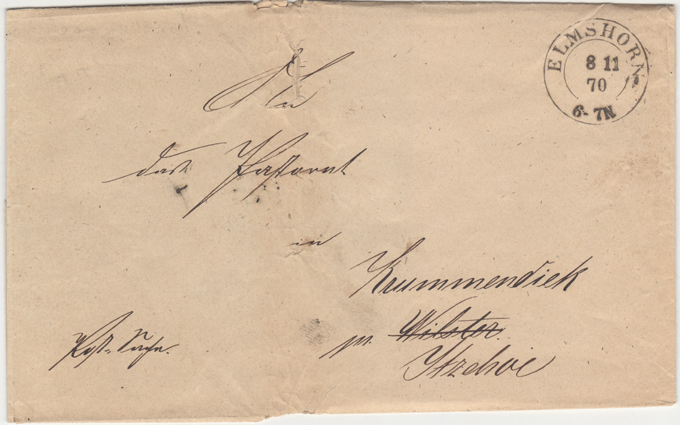 ELMSHORN
8 11
70
6-7N
An
das Pastorat
in
Krummendiek
pr. Wilster.
Itzehoe
Post-Sache.